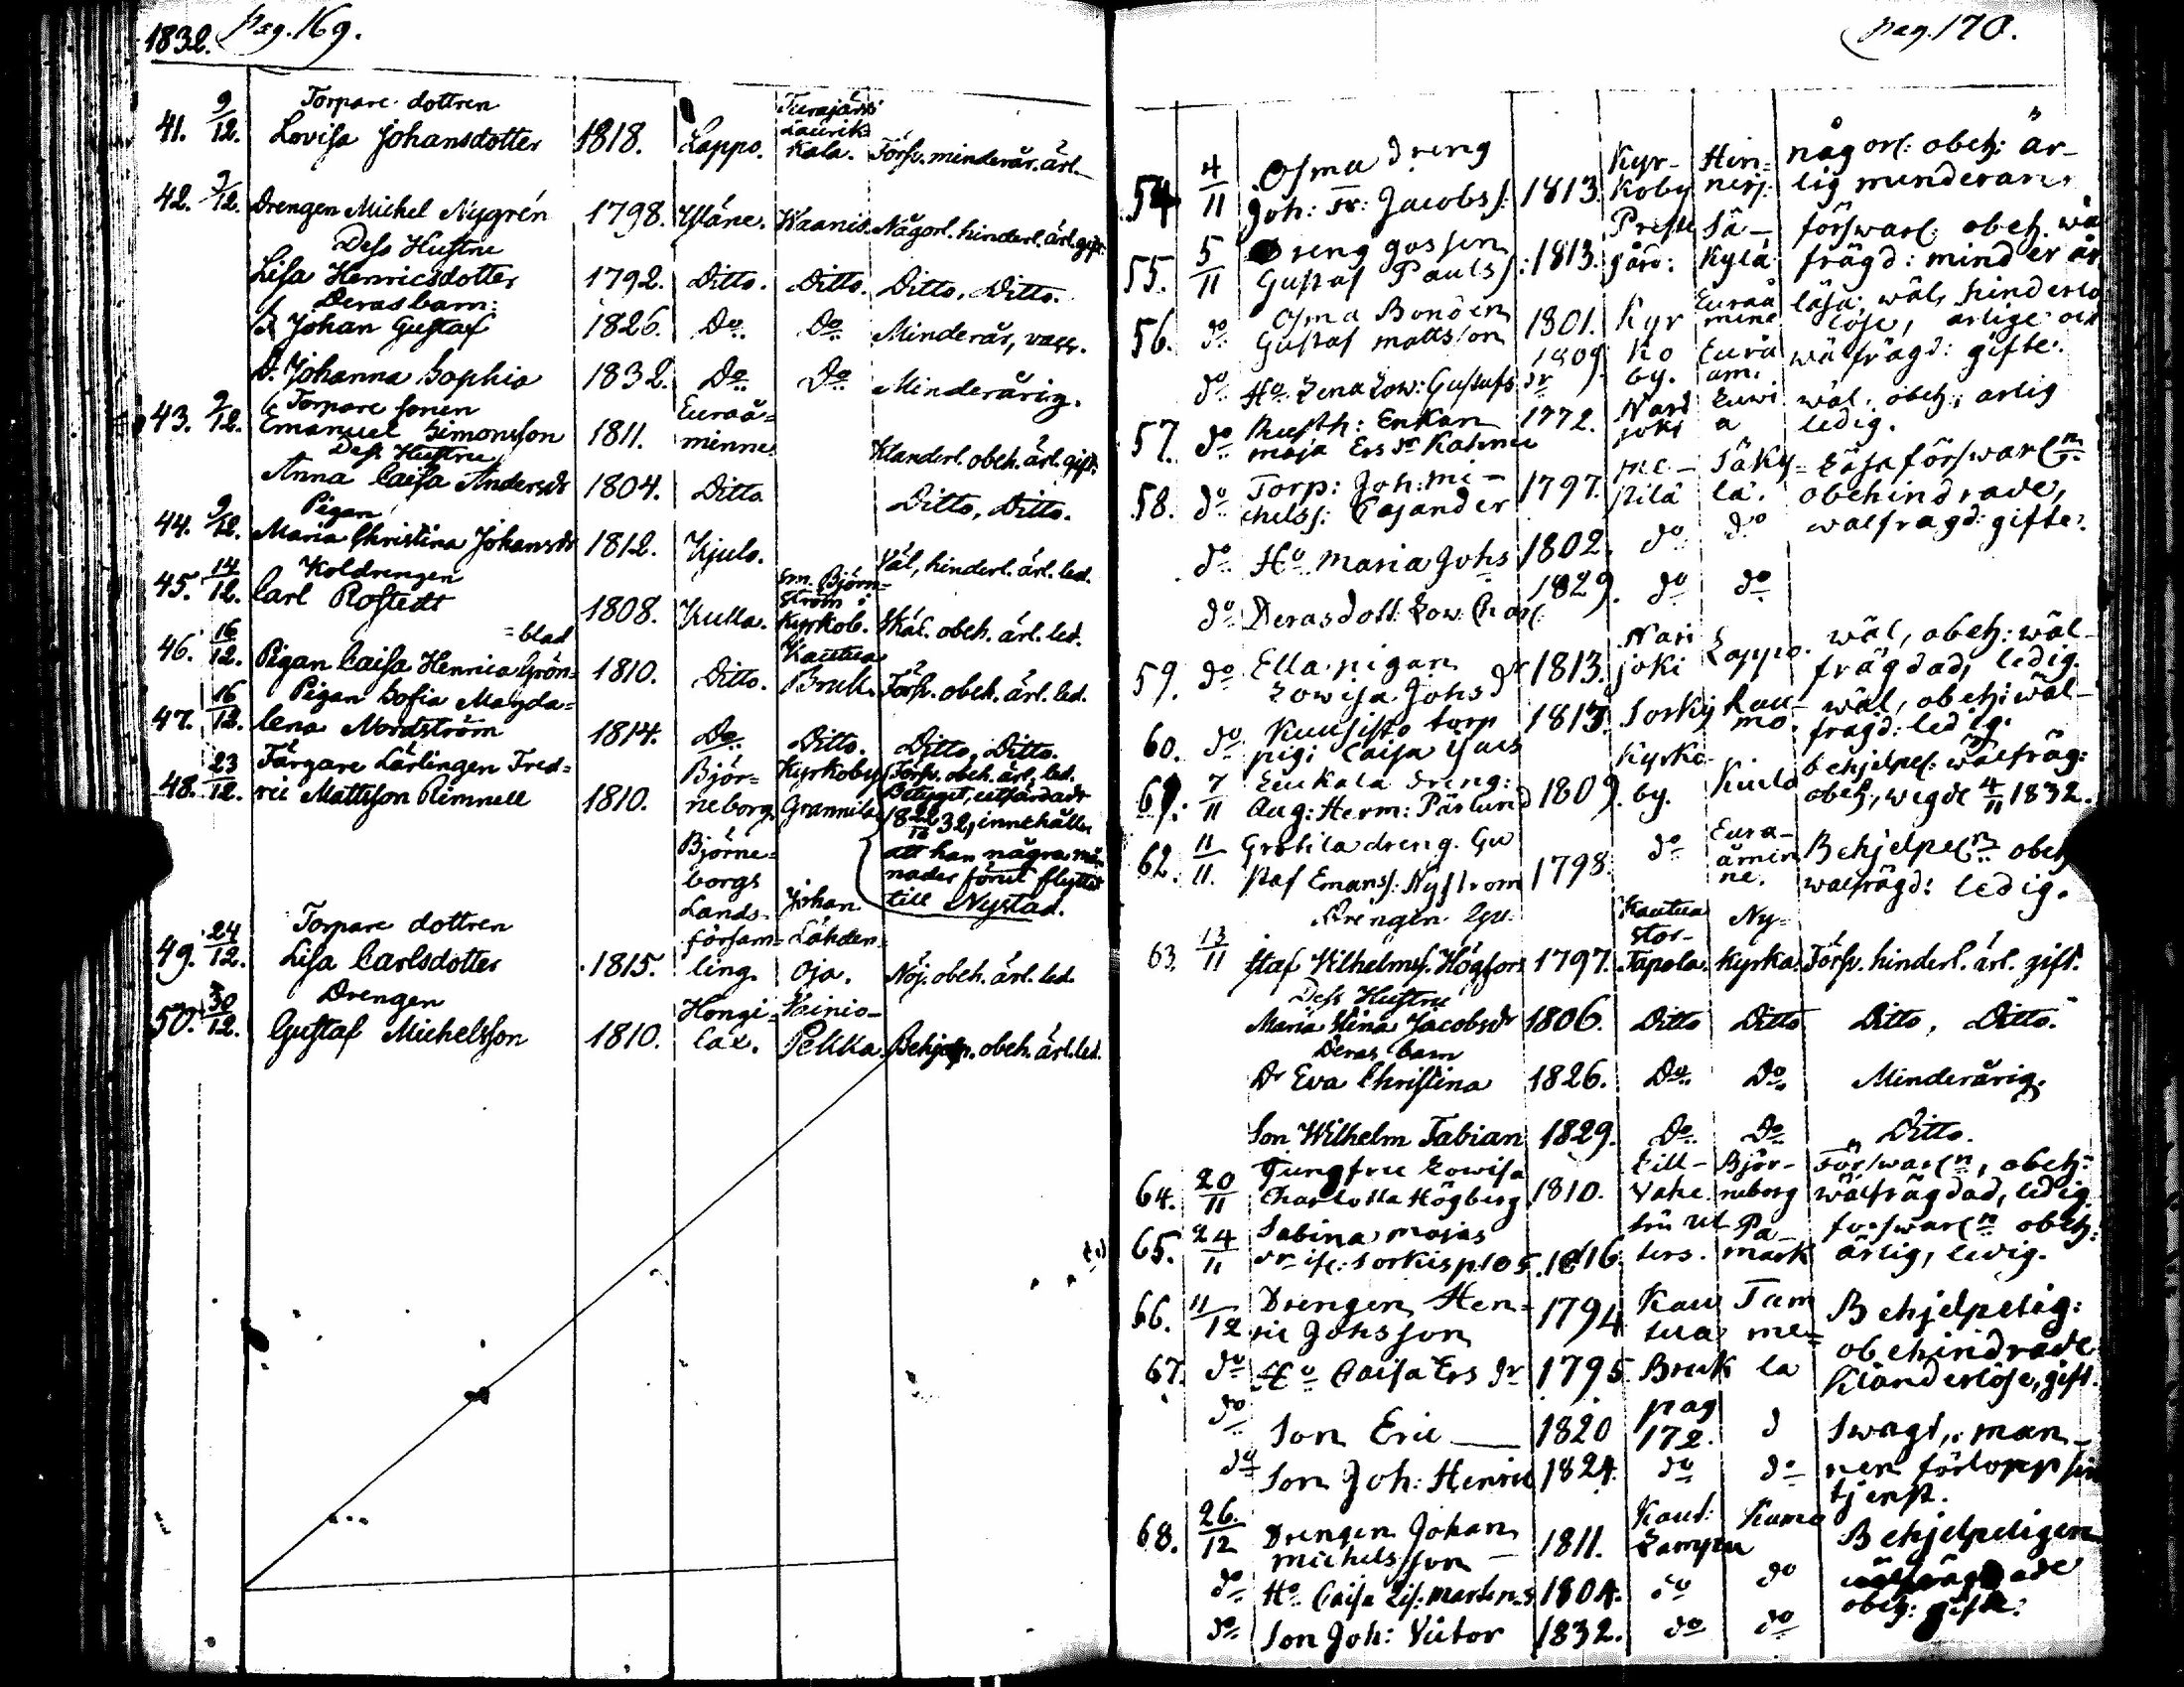 1832. pag. 169.
Torpare dottren
41. 9/12. Lovisa Johansdotter 1818. Lappo. Turajärvi Laurikkala. Försv. minderår. ärl.
42. 9/12. Drengen Michel Nygrén 1798. Yläne. Waanis. Någorl. hinderl. ärl. gift.
Dess Hustru
Lisa Henricsdotter 1792. Ditto. Ditto. Ditto, Ditto.
Deras barn:
S. Johan Gustaf 1826. Do Do Minderår, vacc.
D. Johanna Sophia 1832. Do Do Minderårig.
Torpare sonen
43. 9/12. Emanuel Simonsson 1811. Euraå=minne Klanderl. obeh. ärl. gift.
Dess Hustru
Anna Caisa Andersdr 1804. Ditto Ditto, Ditto.
Pigan
44. 9/12. Maria Christina Johansdr 1812. Kjulo. Väl, hinderl. ärl. led.
Koldrengen
45. 14/12. Carl Rostedt 1808. Kulla. Sm. Björn=ström i Kyrkob. Skäl. obeh. ärl. led.
46. 16/12. Pigan Caisa Henrica Grön=blad 1810. Ditto. Kautua Bruk. Försv. obeh. ärl. led.
Pigan Sofia Magda=
47. 16/12. lena Nordström 1814. Do Ditto. Ditto, Ditto.
Färgare Lärlingen Fred=
48. 23/12. ric Mattsson Rimnell 1810. Björ=neborg. Kyrkoby Grannila Försv. obeh. ärl. led.
Betyget, utfärdadt
18 22/12 32, innehåller
att han några må=
nader förut flyttat
till Nystad.
Torpare dottren
49. 24/12. Lisa Carlsdotter 1815. Björne=borgs Lands-församling. Johan Lähden=oja. Nöj. obeh. ärl. led.
Drengen
50. 30/12. Gustaf Michelsson 1810. Hongi=lax. Vainio-Pekka. Behjelp. obeh. ärl. led.
pag. 170.
Osma Dreng
54 4/11 Joh: Fr: Jacobss: 1813. Kyr-koby Hin=nerj. någorl: obeh: är-lig minderår.
55. 5/11 Dreng gossen Gustaf Paulss: 1813. Preste gård: Sä-kylä försvarl: obeh. wäl frägd: minder år
56. do Osma Bonden Gustaf Mattsson 1801. Kyr Euraå minne läsa: wäl, hinderlö
do Ho Lena Low: Gustafs dr 1809. ko by. Eurå am. löse, ärlige och wälfrägd: gifte.
57. do Rusth: Enkan Maja Ers dr Katinen 1772. Nari joki Euri a wäl, obeh., ärlig ledig.
58. do Torp: Joh: Mi-chelss: Cajander 1797. Me-pilä Säky=lä. Läsa försvarl:n obehindrade,
do Ho Maria Johs 1802. do do wälfrägd: gifte.
do Deras dott: Low: Charl: 1829. do do
59. do Ella pigan Lowisa Johs dr 1813. Nari joki Lappo. wäl, obeh: wäl-frägdad, ledig.
60. do Kuusisto torp pig: Caisa Isacs 1813. Sorky Rau-mo. wäl, obeh: wäl-frägd: ledig.
61. 7/11 Leukala dreng: Aug: Herm: Pärlund 1809. Kyrko-by. Kulla behjelpel: wälfräg: obeh:, wigde 4/11 1832.
62. 11/11. Grotila dreng. Gu staf Emanss: Nyström 1798. do Eura-åmin ne. Behjelpel:n obeh: wälfrägd: ledig.
Drengen Gu
63. 13/11 staf Wilhelmss. Högfors 1797. Kautua Stor-Tapola. Ny=kyrka Försv. hinderl. ärl. gift.
Dess Hustru
Maria Stina Jacobsdr 1806. Ditto Ditto Ditto, Ditto.
Deras barn
Dr Eva Christina 1826. Do Do Minderårig.
Son Wilhelm Fabian 1829. Do Do Ditto.
64. 20/11 Jungfru Lowisa Charlotta Högberg 1810. Lill-Vahe. Björ-neborg Försvarl:n, obeh: wälfrägdad, ledig
65. 24/11 Sabina Majas dr 1816. Pa-mark försvarl:n obeh: ärlig, ledig.
66. 11/12 Drengen Hen=ric Johsson 1794 Kau tua Tam me= Behjelpelig: obehindrade
67. do Ho Caisa Ers dr 1795 Bruk la Klanderlöse, gift.
do Son Eric 1820 pag 172. d Swagt, man-
do Son Joh: Henric 1824. do do nen förlopp sin tjenst.
68. 26./12 Drengen Johan Michelsson 1811. Kaut: Lampu Kumo Behjelpeligen
do Ho Caisa Lis: Martens 1804. do do wälfrägdade
do Son Joh: Victor 1832. do do obeh: gifte: